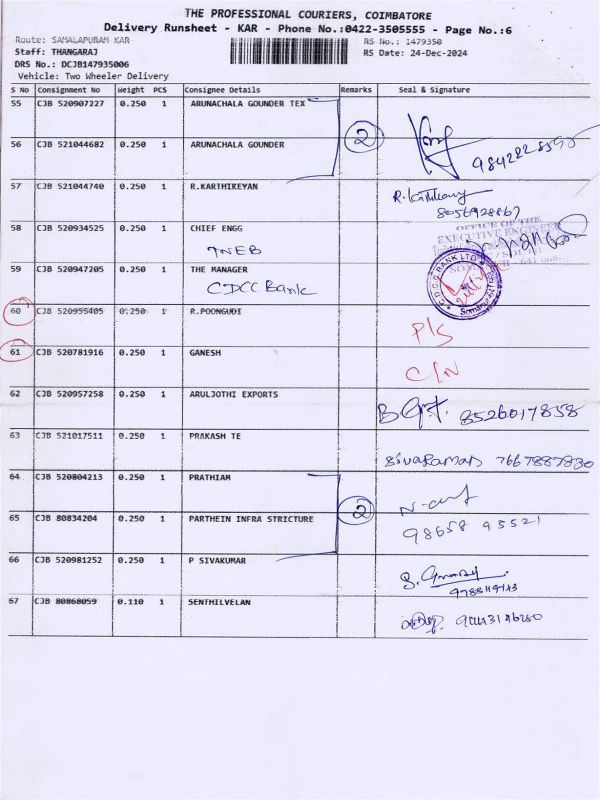 THE PROFESSIONAL COURIERS, COIMBATORE
Delivery Runsheet - KAR - Phone No.:0422-3505555 - Page No.:6
Route: SAMALAPURAM KAR RS No.: 1479350
Staff: THANGARAJ RS Date: 24-Dec-2024
DRS No.: DCJB147935006
Vehicle: Two Wheeler Delivery
S No Consignment No Weight PCS Consignee Details Remarks Seal & Signature
55 CJB 520907227 0.250 1 ARUNACHALA GOUNDER TEX
2
56 CJB 521044682 0.250 1 ARUNACHALA GOUNDER
57 CJB 521044740 0.250 1 R.KARTHIKEYAN
8056928867
58 CJB 520934525 0.250 1 CHIEF ENGG
TNEB
OFFICE OF THE
EXECUTIVE ENGINEER
59 CJB 520947205 0.250 1 THE MANAGER
CDCC Bank
60 CJB 520955405 0.250 1 R.POONGUDI P/S
61 CJB 520781916 0.250 1 GANESH C/N
62 CJB 520957258 0.250 1 ARULJOTHI EXPORTS 8526017858
63 CJB 521017511 0.250 1 PRAKASH TE
Sivaraman 7667887830
64 CJB 520804213 0.250 1 PRATHIAM
2
65 CJB 80834204 0.250 1 PARTHEIN INFRA STRICTURE
98658 95521
66 CJB 520981252 0.250 1 P SIVAKUMAR
67 CJB 80868059 0.110 1 SENTHILVELAN